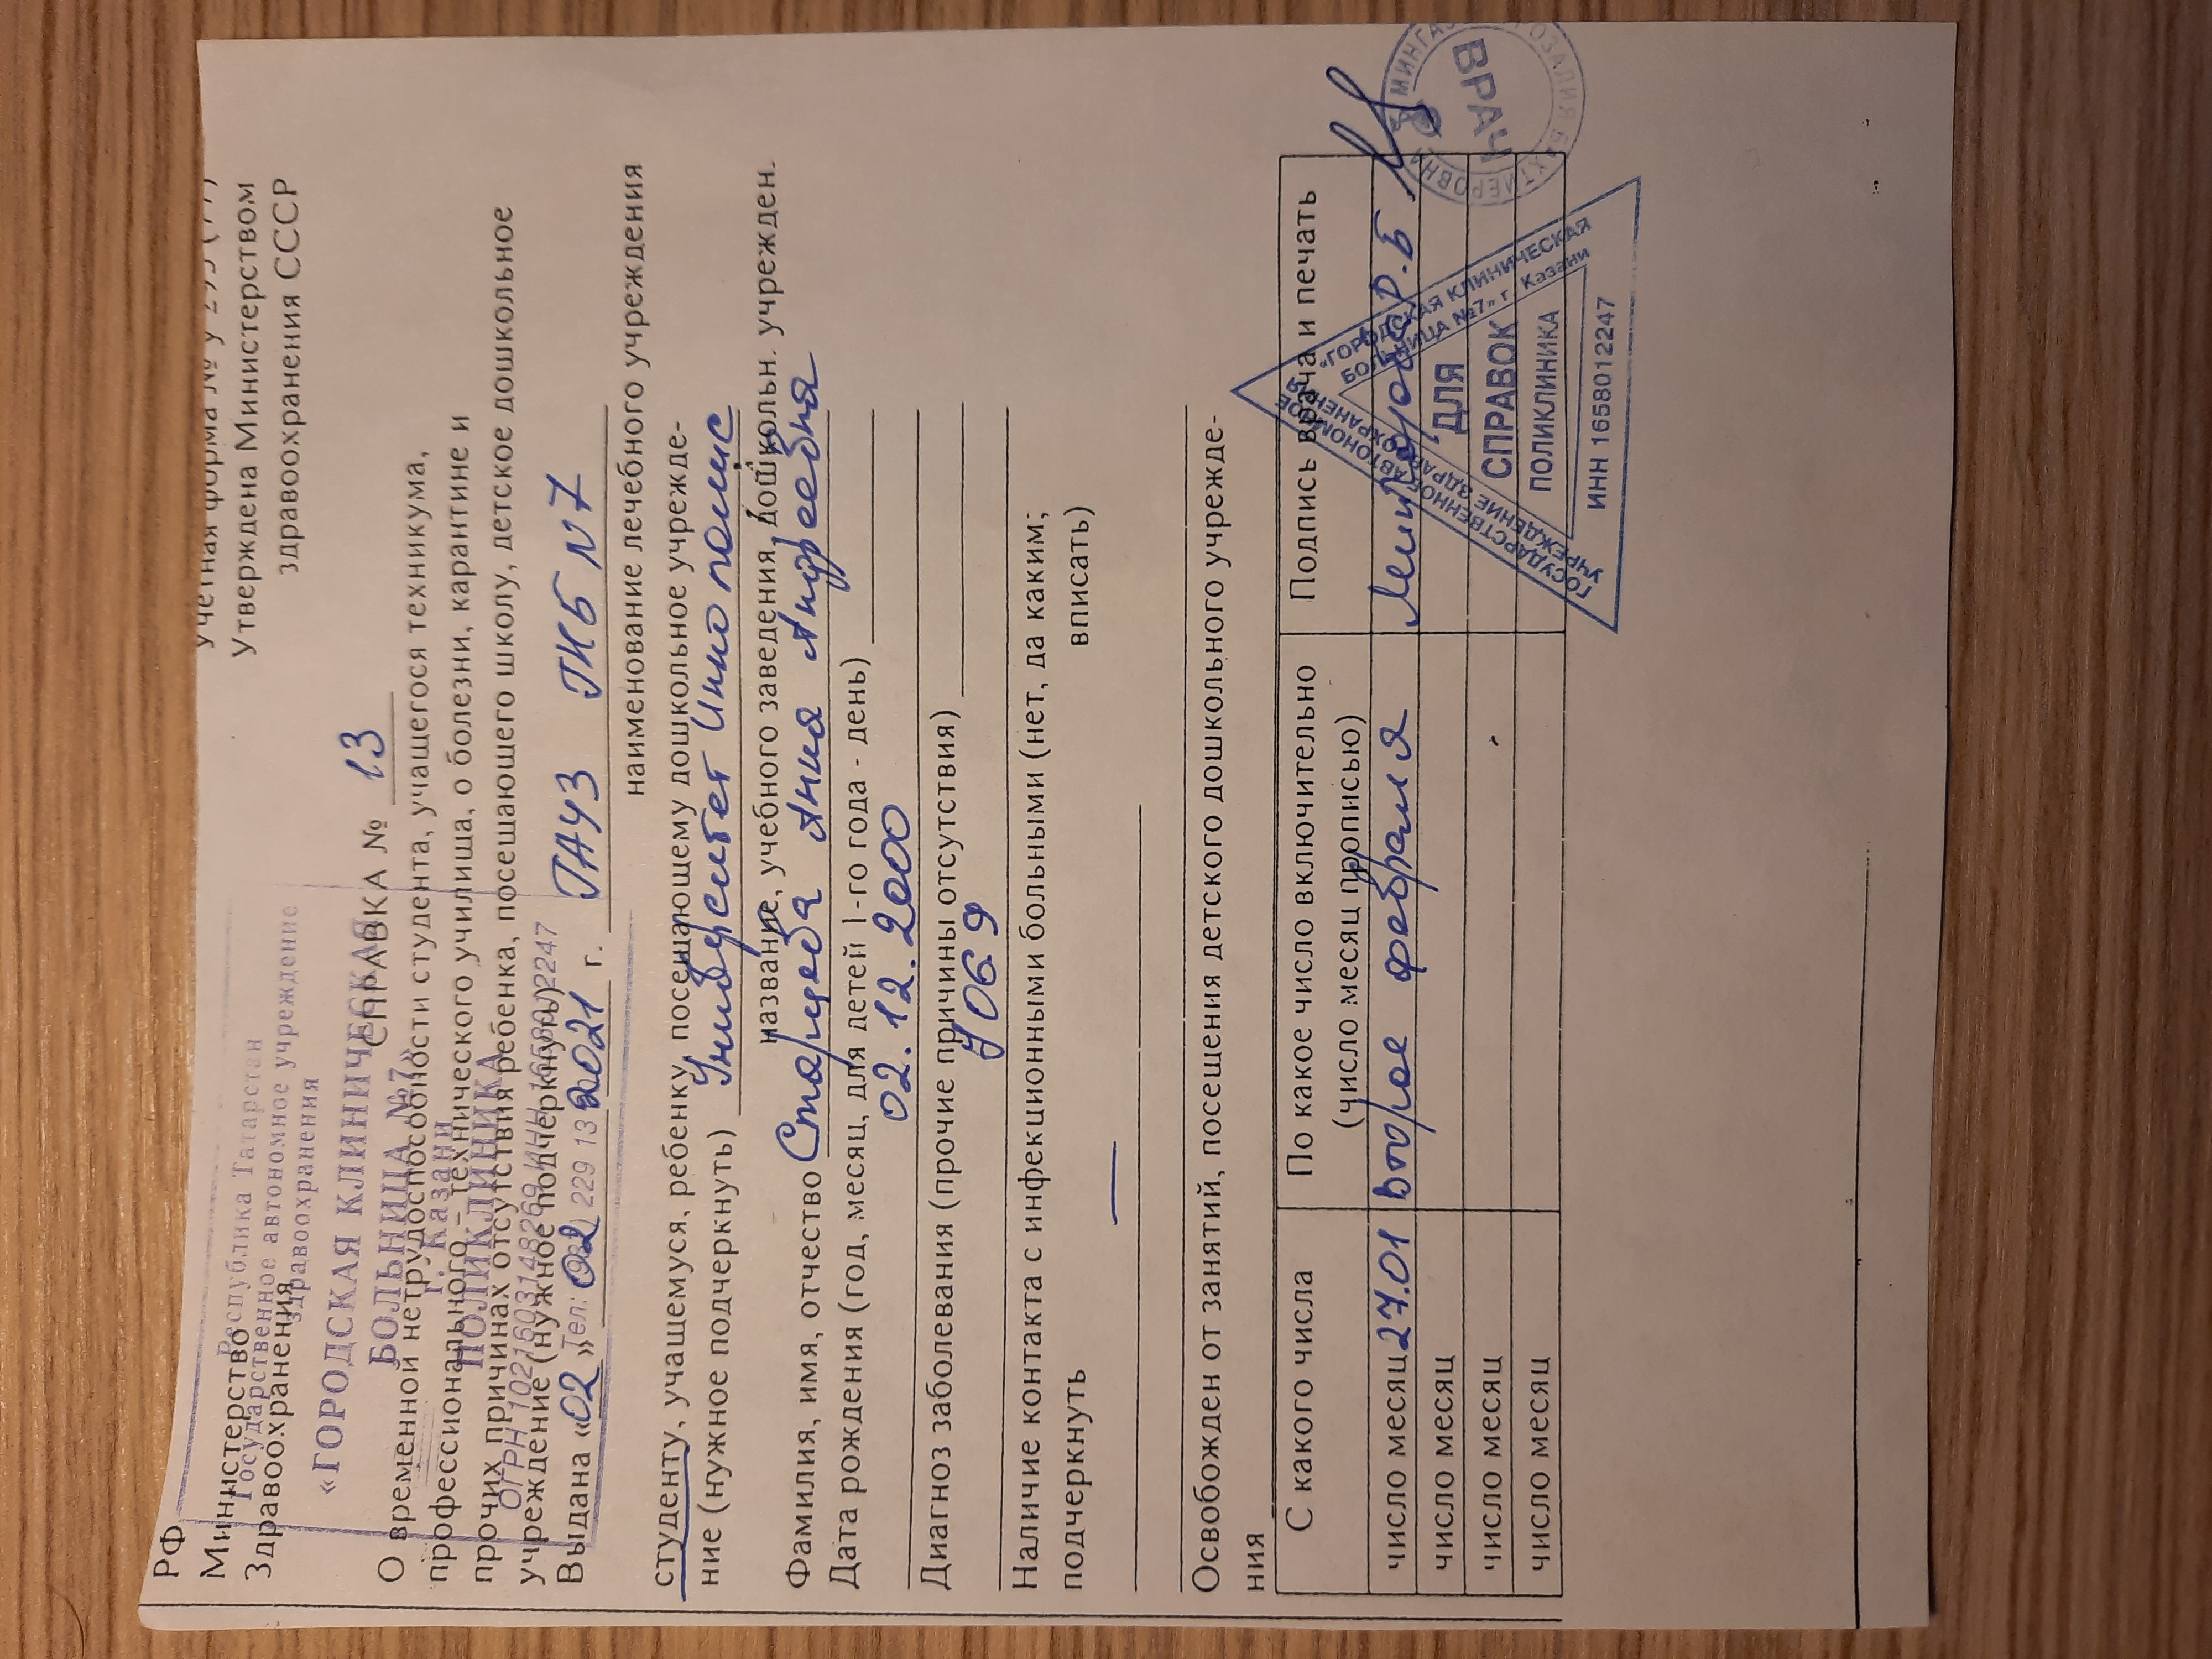 РФ
Министерство
Здравоохранения
Республика Татарстан
Государственное автономное учреждение
здравоохранения
«ГОРОДСКАЯ КЛИНИЧЕСКАЯ
БОЛЬНИЦА №7»
г. Казани
ПОЛИКЛИНИКА
ОГРН 1021603148269 ИНН 1658012247
Тел: 229 13
Учетная форма № у
Утверждена Министерством
здравоохранения СССР
СПРАВКА № 13
О временной нетрудоспособности студента, учащегося техникума,
профессионального – технического училища, о болезни, карантине и
прочих причинах отсутствия ребенка, посещающего школу, детское дошкольное
учреждение (нужное подчеркнуть)
Выдана «02» 02 2021 г. ГАУЗ ГКБ N7
наименование лечебного учреждения
студенту, учащемуся, ребенку, посещающему дошкольное учрежде-
ние (нужное подчеркнуть) Университет Иннополис
название, учебного заведения, дошкольн. учрежден.
Фамилия, имя, отчество Старцева Анна Андреевна
Дата рождения (год, месяц, для детей 1-го года - день)
02.12.2000
Диагноз заболевания (прочие причины отсутствия)
J06.9
Наличие контакта с инфекционными больными (нет, да каким;
подчеркнуть вписать)
—
Освобожден от занятий, посещения детского дошкольного учрежде-
ния
С какого числа По какое число включительно Подпись врача и печать
(число месяц прописью)
число месяц 27.01 Второе февраля Р.Б
число месяц
число месяц
число месяц
ГОСУДАРСТВЕННОЕ АВТОНОМНОЕ
УЧРЕЖДЕНИЕ ЗДРАВООХРАНЕНИЯ
«ГОРОДСКАЯ КЛИНИЧЕСКАЯ
БОЛЬНИЦА №7», г. Казани
ДЛЯ
СПРАВОК
ПОЛИКЛИНИКА
ИНН 1658012247
ВРАЧ